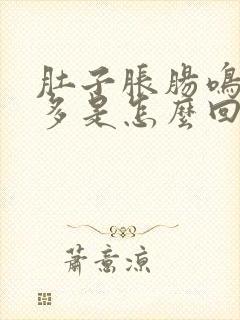 肚子脹腸鳴
多是怎麼回
蕭意涼